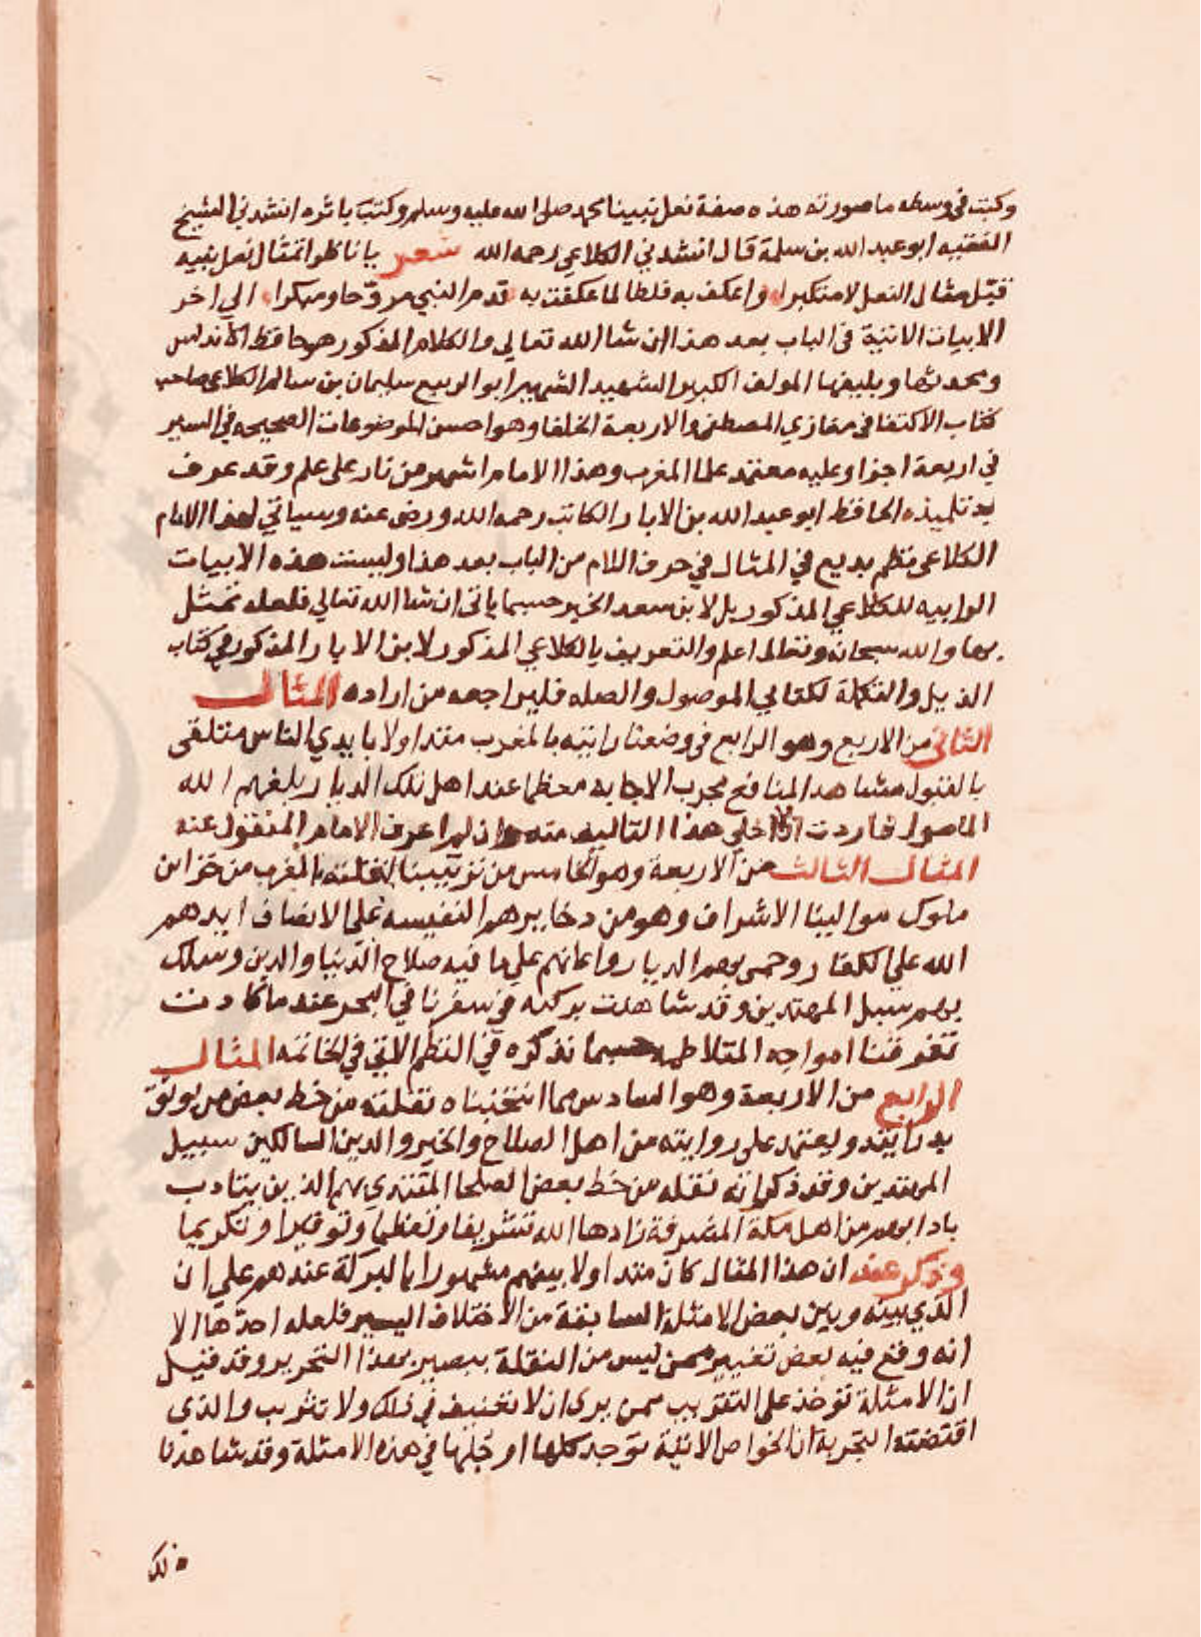 وكتب في وسطه ما صورته هذه صفة نعل نبينا محمد صلى الله عليه وسلم وكتب باثره انشدني الشيخ
الفقيه ابو عبد الله بن سلمة قال انشدني الكلاعي رحمه الله شعر يا ناظرا تمثال نعل نبيه
قبل مثال النعل لا متكبرا واعكف به فلطالما عكفت به قدم النبي مروحا ومبكرا الي اخر
الابيات الاتية في الباب بعد هذا ان شا الله تعالي والكلاعي المذكور هو حافظ الاندلس
ومحدثها وبليغها المولف الكبير الشهيد الشهير ابو الربيع سليمان بن سالم الكلاعي صاحب
كتاب الاكتفا في مغازي المصطفي والاربعة الخلفا وهو احسن الموضوعات الصحيحه في السير
في اربعة اجزا وعليه معتمد علما المغرب وهذا الامام اشهر من نار علي علم وقد عرف
به تلميذه الحافظ ابو عبد الله بن الابار الكاتب رحمه الله ورضي عنه وسياتي لهذا الامام
الكلاعي نظم بديع في المثال في حرف اللام من الباب بعد هذا وليست هذه الابيات
الراييه للكلاعي المذكور بل لابن سعد الخير حسبما ياتي ان شا الله تعالي فلعله تمثل
بها والله سبحانه وتعالي اعلم والتعريف بالكلاعي المذكور لابن الابار المذكور في كتاب
الذيل والتكملة لكتابي الموصول والصله فليراجعه من اراده المثال
الثاني من الاربع وهو الرابع في وضعنا رايته بالمغرب متداولا بايدي الناس متلقي
بالقبول مشاهد المنافع مجرب الاجابه معظما عند اهل تلك الديار بلغهم الله
المامول فاردت ان لا اخلي هذا التاليف منه وان لم اعرف الامام المنقول عنه
المثال الثالث من الاربعة وهو الخامس من ترتيبنا نقلته بالمغرب من خزاين
ملوك موالينا الاشراف وهو من دخايرهم النفيسه علي الانصاف ايدهم
الله علي الكفار وحمي بهم الديار واعانهم علي ما فيه صلاح الدنيا والدين وسلك
بهم سبيل المهتدين وقد شاهدت بركته في سفرنا في البحر عند ما كادت
تغرقنا امواجه المتلاطمه حسبما نذكره في النظم الاتي في الخاتمه المثال
الرابع من الاربعة وهو السادس مما انتخبناه نقلته من خط بعض من يوثق
به ويعتمد علي روايته من اهل الصلاح والخير والدين السالكين سبيل
المهتدين وقد ذكر انه نقله من خط بعض الصلحا المقتدي بهم الذين يتادب
بادابهم من اهل مكة المشرفة زادها الله تشريفا وتعظيما وتوقيرا وتكريما
وذكر عنه ان هذا المثال كان متداولا بينهم مشهورا بالبركة عندهم علي ان
الذي بينه وبين بعض الامثلة السابقة من الاختلاف اليسير فلعله احدها الا
انه وقع فيه بعض تغيير ممن ليس من النقلة ببصير بهذا التحرير وقد قيل
ان الامثلة توخذ علي التقريب ممن يري ان لا تعنيف في ذلك ولا تثريب والذي
اقتضته التجربة ان الخواص الاتية توجد كلها او جلها في هذه الامثلة وقد شاهدنا
ذلك